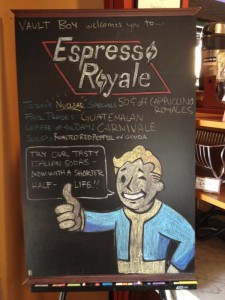 VAULT BOY welcomes you to...
Espresso
Royale
TODAY'S NUCLEAR SPECIALS 50¢ OFF CAPPUCINO
ROYALES
FREE TRADES: GUATEMALAN
COFFEE OF THE DAY: CARNIVALE
SOUP: ROASTED RED PEPPER GOUDA
TRY OUR TASTY
ITALIAN SODAS -
NOW WITH A SHORTER
HALF-LIFE!!